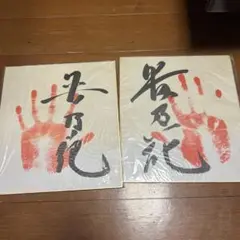 乃花
若乃花